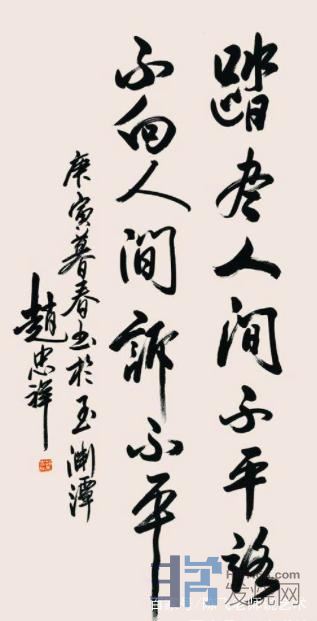 踏尽人间不平路
不向人间诉不平
庚寅暮春书于玉渊潭
赵忠祥
发烧网